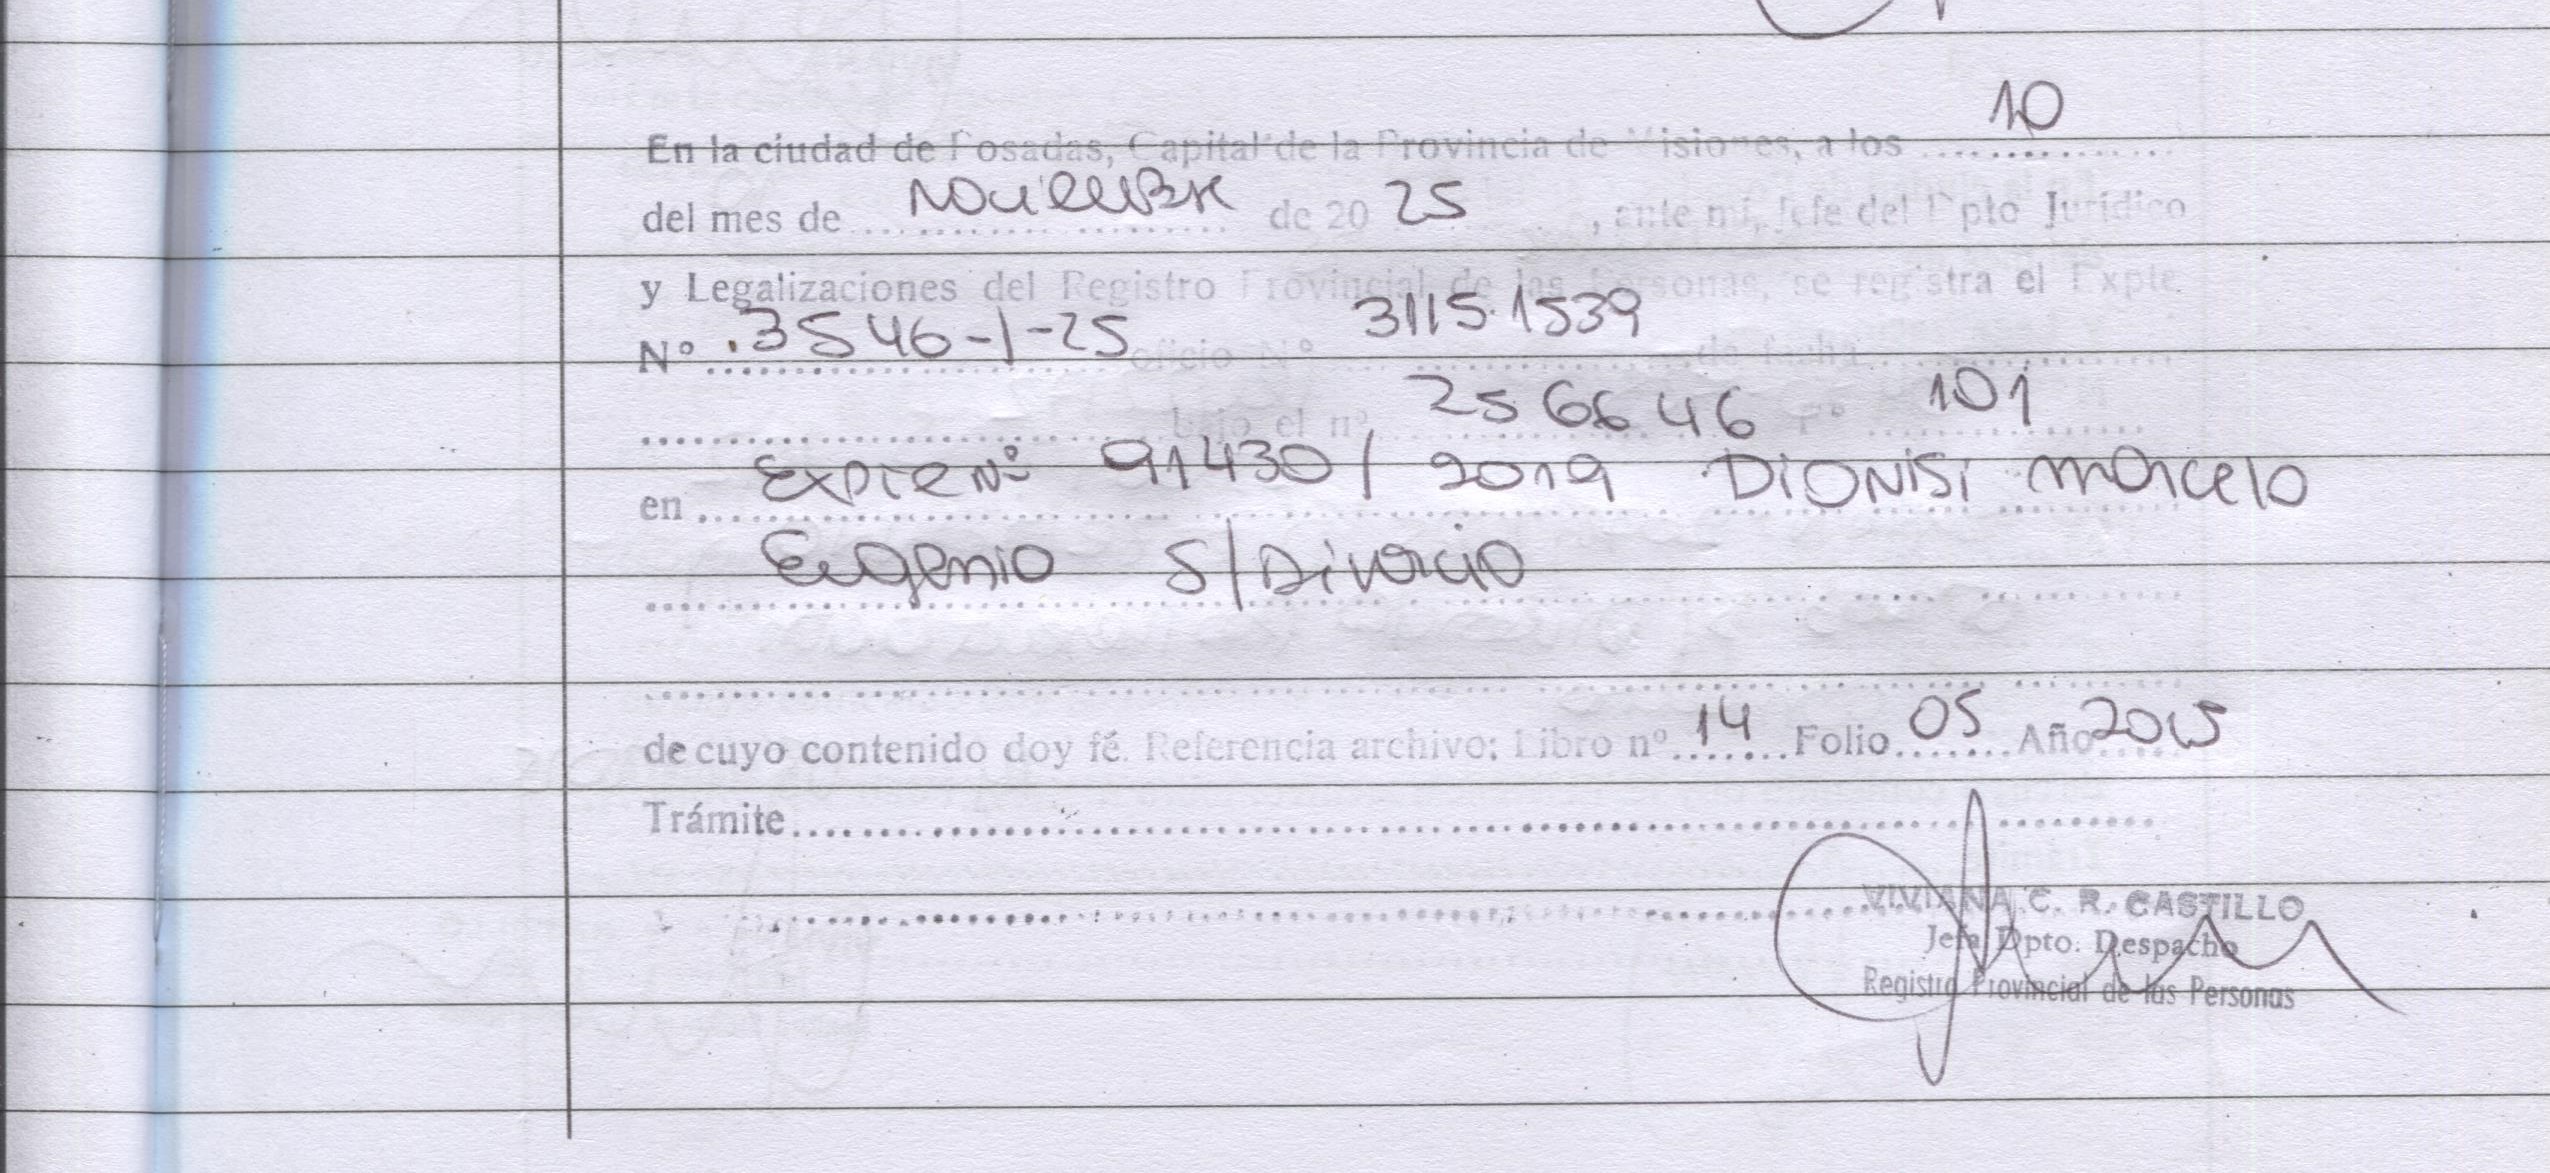 10
En la ciudad de Posadas, Capital de la Provincia de Misiones, a los
del mes de Noviembre de 20 25, ante mí, Jefe del Dpto Jurídico
y Legalizaciones del Registro Provincial de las Personas, se registra el Expte.
Nº 3546-1-25 oficio Nº 3115.1539 de fecha
bajo el nº 256646 Fº 101
en Expte Nº 91430/2019 DIONISI Marcelo
Eugenio S/Divorcio
de cuyo contenido doy fé. Referencia archivo: Libro nº 14 Folio 05 Año 2015
Trámite
VIVIANA C. R. CASTILLO
Jefa Dpto. Despacho
Registro Provincial de las Personas